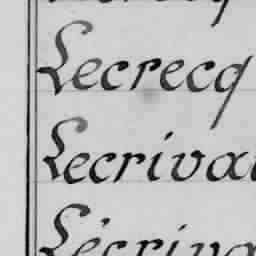 Lecrecq
Lecriva
Lécriva